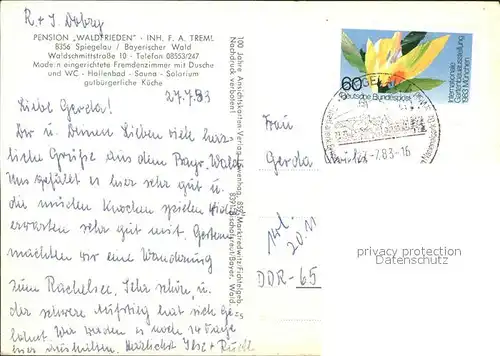 R + I. Dobry
PENSION „WALDFRIEDEN" · INH. F. A. TREML
8356 Spiegelau / Bayerischer Wald
Waldschmittstraße 10 - Telefon 08553/247
Modern eingerichtete Fremdenzimmer mit Dusche
und WC - Hallenbad - Sauna - Solarium
gutbürgerliche Küche
27.7.83
Liebe Gerda!
Dir u. Deinen Lieben viele herz-
liche Grüße aus dem Bayr. Wald
Uns gefällt es hier sehr gut u.
die müden Knochen spielen wider
erwarten sehr gut mit. Gestern
machten wir eine Wanderung
zum Rachelsee. Sehr schön, u.
der schwere Aufstieg hat sich ge-
lohnt. Wir werden es noch 14 Tage
hier aushalten. Herzlichst Ilse + Rudi
100 Jahre Ansichtskarten-Verlag
Nachdruck verboten!
Frau
Gerda
DDR-65
60
Deutsche Bundespost
Internationale
Gartenbauausstellung
1983 München
-7.83-16
privacy protection
Datenschutz